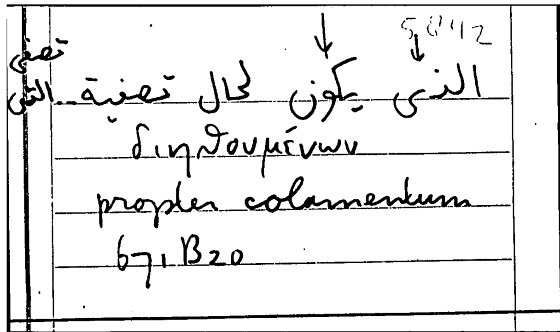 5842
تصفى
الذى يكون لحال تصفية... التى
διηθουμένων
propter colamentum
671 B 20